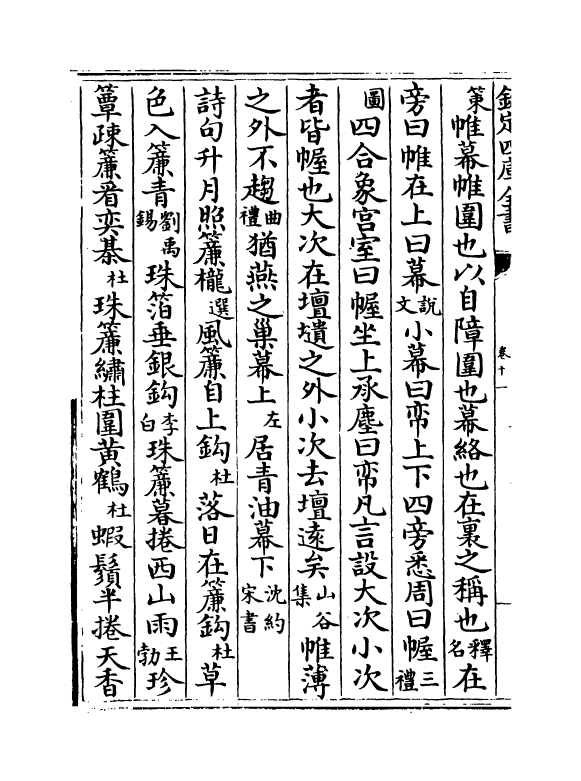 欽定四庫全書
卷十一
䇿帷幕帷圍也以自障圍也幕絡也在裏之稱也釋名在
旁曰帷在上曰幕說文小幕曰帟上下四旁悉周曰幄三禮
圖四合象宮室曰幄坐上承塵曰帟凡言設大次小次
者皆幄也大次在壇壝之外小次去壇遠矣山谷集帷薄
之外不趨曲禮猶燕之巢幕上左居青油幕下沈約宋書
詩句升月照簾櫳選風簾自上鈎杜落日在簾鈎杜草
色入簾青劉禹錫珠箔垂銀鈎李白珠簾暮捲西山雨王勃珍
簟疎簾看奕棊杜珠簾繡柱圍黃鶴杜蝦鬚半捲天香